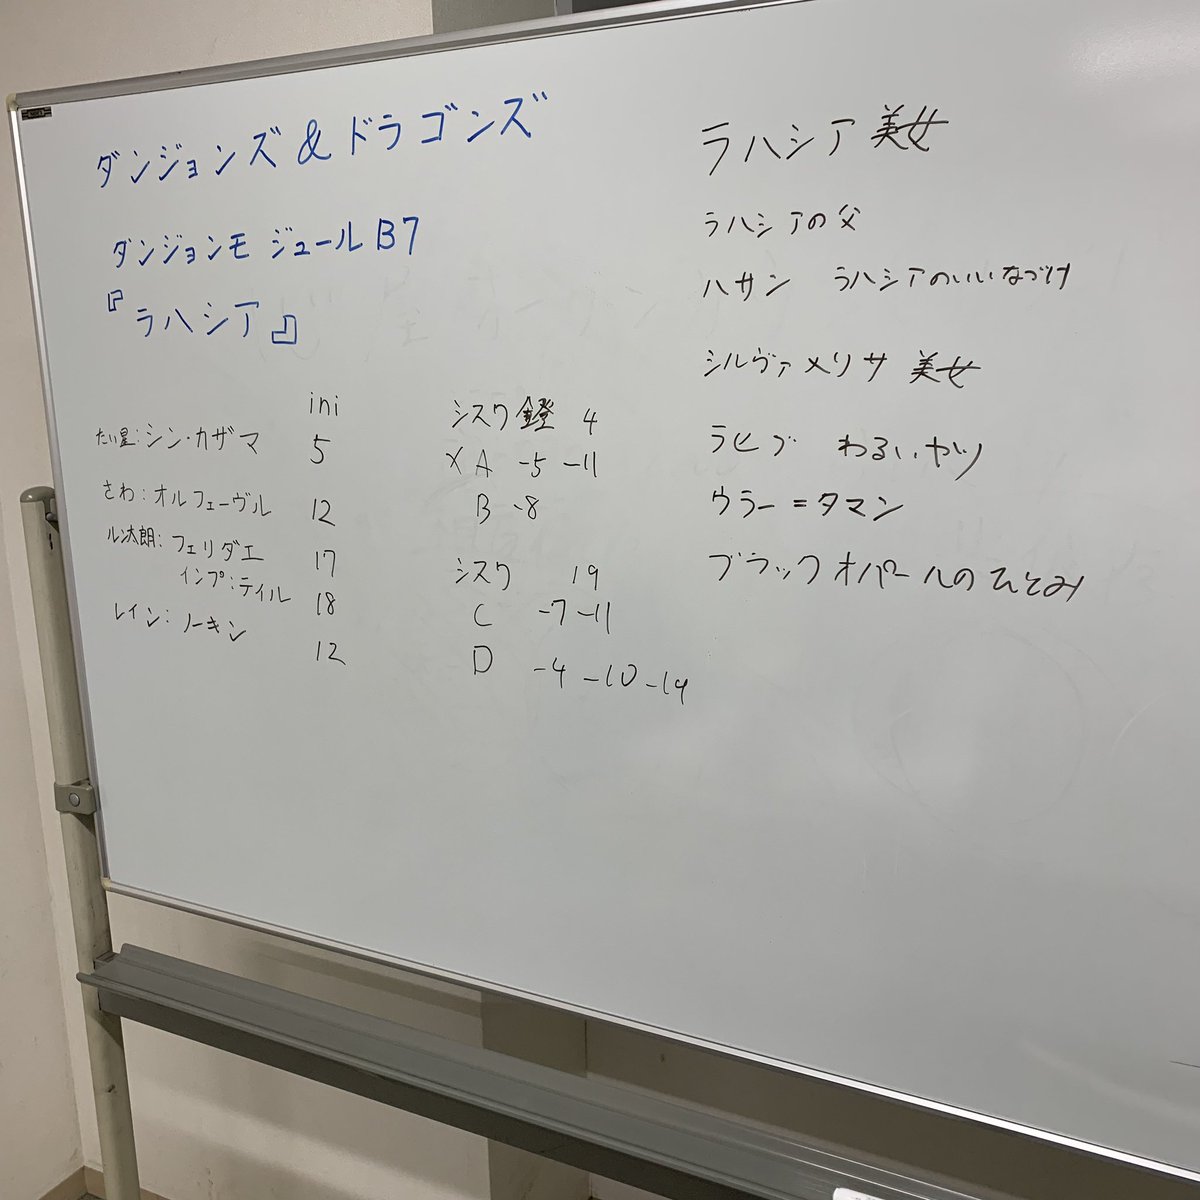 ダンジョンズ&ドラゴンズ
ダンジョンモジュールB7
『ラハシア』
ini
たい星:シン・カザマ 5
さわ:オルフェーヴル 12
ル太朗:フェリダエ 17
インプ:テイル 18
レイン:ノーキン 12
シスク鐙 4
× A -5 -11
B -8
シスク 19
C -7 -11
D -4 -10 -14
ラハシア 美女
ラハシアの父
ハサン ラハシアのいいなづけ
シルヴァメリサ 美女
ラヒブ わるいヤツ
ウラー=タマン
ブラックオパールのひとみ